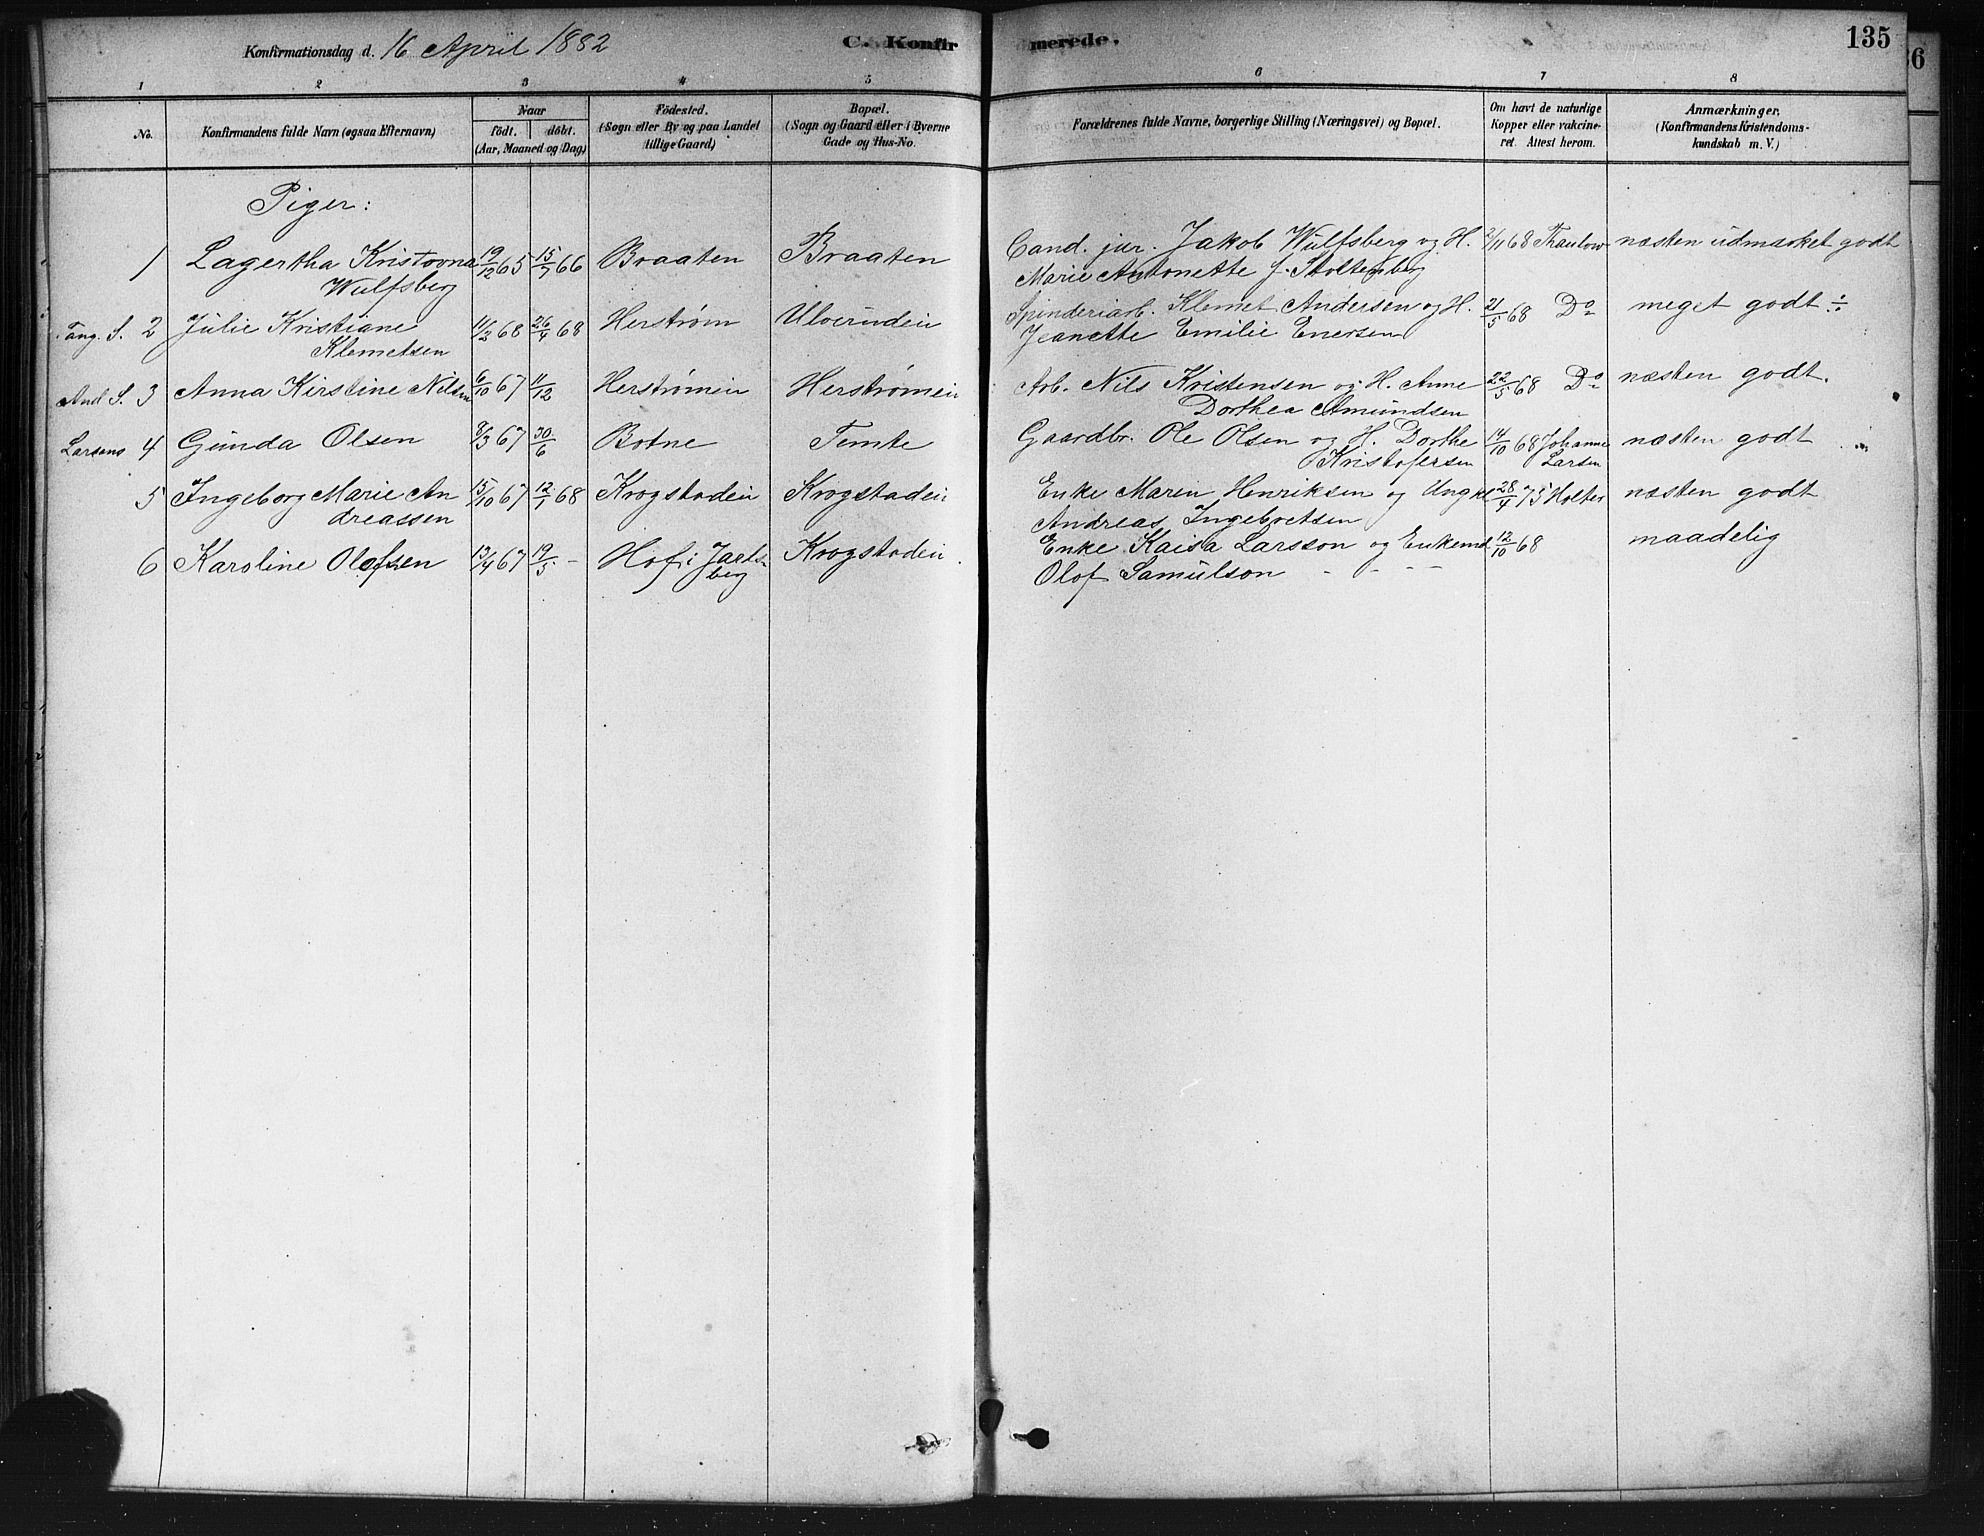 Konfirmationsdag d. 16 April 1882
C. Konfirmerede.
135
36
1 2 3 4 5 6 7 8
No.
Konfirmandens fulde Navn (ogsaa Efternavn)
Naar
født. døbt.
(Aar, Maaned og Dag)
Fødested.
(Sogn eller By og paa Landet
tillige Gaard)
Bopæl.
(Sogn og Gaard eller i Byerne
Gade og Hus-No.
Forældrenes fulde Navne, borgerlige Stilling (Næringsvei) og Bopæl.
Om havt de naturlige
Kopper eller vakcine-
ret. Attest herom.
Anmærkninger.
(Konfirmandens Kristendoms-
kundskab m. V.)
Piger:
1 Lagertha Kristovna 19/12 65 15/7 66 Braaten Braaten Cand. jur. Jakob Wulfsberg og H. 2/11 68 Thaulow næsten udmærket godt
Wulfsberg Marie Antonette f. Stoltenberg
Tang. S. 2 Julie Kristiane 11/2 68 26/4 68 Herstrøm Ulverudein Spinderiarb. Klemet Andersen og H. 21/5 68 Do meget godt ÷
Klemetsen Jeanette Emilie Enersen
And S. 3 Anna Kirstine Nilsen 6/10 67 11/12 Herstrømein Herstrømein Arb. Nils Kristensen og H. Anne 22/5 68 Do næsten godt.
Dorthea Amundsen
Larsens 4 Gunda Olsen 8/3 67 30/6 Botne Temte Gaardbr. Ole Olsen og H. Dorthe 14/10 68 Johanne næsten godt
Kristofersen Larsen
5 Ingeborg Marie An 15/10 67 12/1 68 Krogstadein Krogstadein Enke Maren Henriksen og Ungkl 28/4 75 Holter næsten godt
dreassen Andreas Ingebretsen
6 Karoline Olofsen 13/4 67 19/5 - Hof i Jarls- Krogstadein. Enke Kaisa Larsson og Enkemd. 12/10 68 maadelig
berg Olof Samulson - - - -